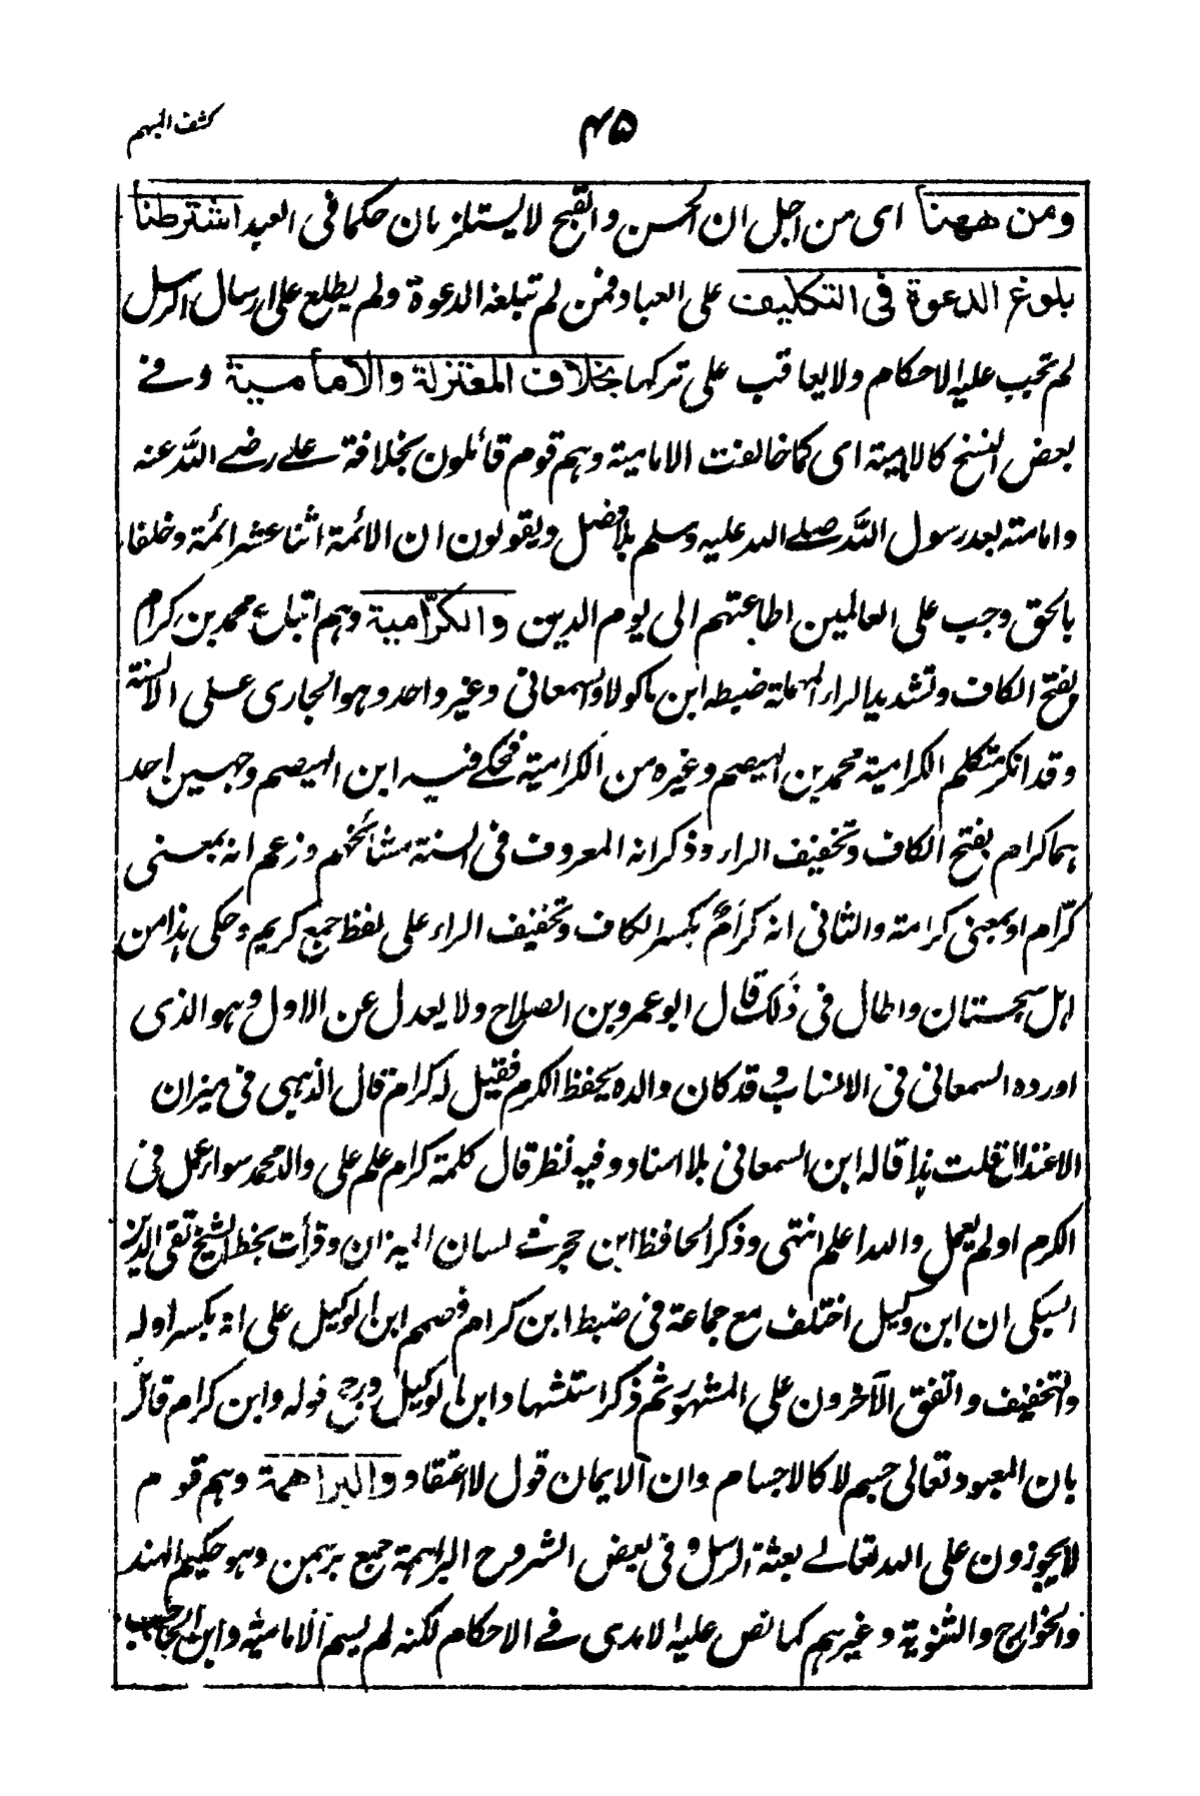 كشف المبهم
۴۵
ومن ههنا اى من اجل ان الحسن والقبح لا يستلزمان حكما فى العبد اشترطنا
بلوغ الدعوة فى التكليف على العباد فمن لم تبلغه الدعوة ولم يطلع على ارسال الرسل
لم تجب عليه الاحكام ولا يعاقب على تركها بخلاف المعتزلة والامامية وفے
بعض النسخ كالامامية اى كما خالفت الامامية وهم قوم قائلون بخلافة علے رضے اللّٰه عنه
وامامته بعد رسول اللّٰه صلے الله عليه وسلم بلا فصل ويقولون ان الائمة اثنا عشر ائمة وخلفاء
بالحق وجب على العالمين اطاعتهم الى يوم الدين والكرّامية وهم اتباع محمد بن كرام
بفتح الكاف وتشديد الراء المهملة ضبطه ابن ماكولا والسمعانى وغير واحد وهو الجارى على الالسنة
وقد انكر متكلم الكرامية محمد بن الهيصم وغيره من الكرامية فحكے فيه ابن الهيصم وجهين احد
هما كرام بفتح الكاف وتخفيف الراء وذكر انه المعروف فى السنة مشائخهم وزعم انه بمعنى
كرّام او بمعنى كرامة والثانى انه كرَامٌ بكسر الكاف وتخفيف الراء على لفظ جمع كريم وحكى هذا من
اهل سجستان واطال فى ذلك قال ابو عمرو بن الصلاح ولا يعدل عن الاول وهو الذى
اورده السمعانى فى الانساب وقد كان والده يحفظ الكرم فقيل له كرام قال الذهبى فى ميزان
الاعتدال قلت هذا قاله ابن السمعانى بلا اسناد وفيه نظر قال كلمة كرام علم على والد محمد سواء عمل فى
الكرم او لم يعمل والله اعلم انتهى وذكر الحافظ ابن حجر فے لسان الميزان وقرأت بخط الشيخ تقى الدين
السبكى ان ابن وكيل اختلف مع جماعة فى ضبط ابن كرام فصمم ابن الوكيل على انه بكسر اوله
والتخفيف واتفق الآخرون على المشهور ثم ذكر استشهاد ابن الوكيل ورجع قوله وابن كرام قائل
بان المعبود تعالى جسم لا كالاجسام وان الايمان قول لا اعتقاد والبراهمة وهم قوم
لا يجوزون على الله تعالے بعثة الرسل وفى بعض الشروح البراهمة جمع برهمن وهو حكيم الهند
والخوارج والثنوية وغيرهم كما نص عليه الامدى فے الاحكام لكنه لم يسم الامامية وابن الحاجب